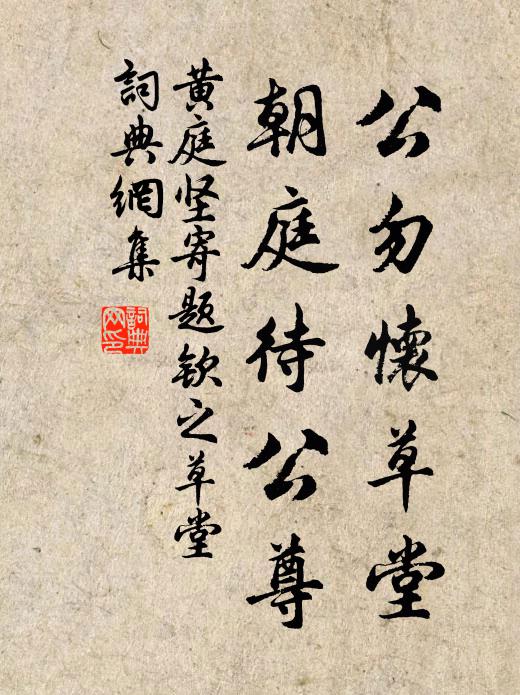 公勿懷草堂
朝庭待公尊
黄庭坚寄题欽之草堂
詞典網集
詞典網印